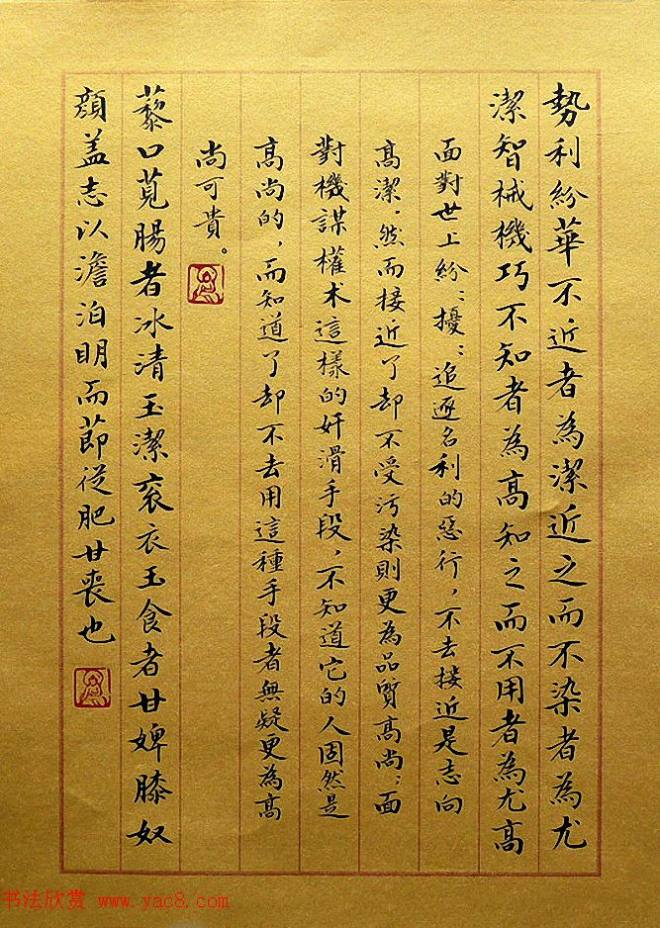 勢利紛華不近者為潔近之而不染者為尤
潔智械機巧不知者為高知之而不用者為尤高
面對世上紛〻擾〻追逐名利的惡行，不去接近是志向
高潔．然而接近了却不受污染則更為品質高尚；面
對機謀權术這樣的奸滑手段，不知道它的人固然是
高尚的，而知道了却不去用這種手段者無疑更為高
尚可貴。
藜口莧腸者冰清玉潔袞衣玉食者甘婢膝奴
顏盖志以澹泊明而節從肥甘喪也
书法欣赏 www.yac8.com